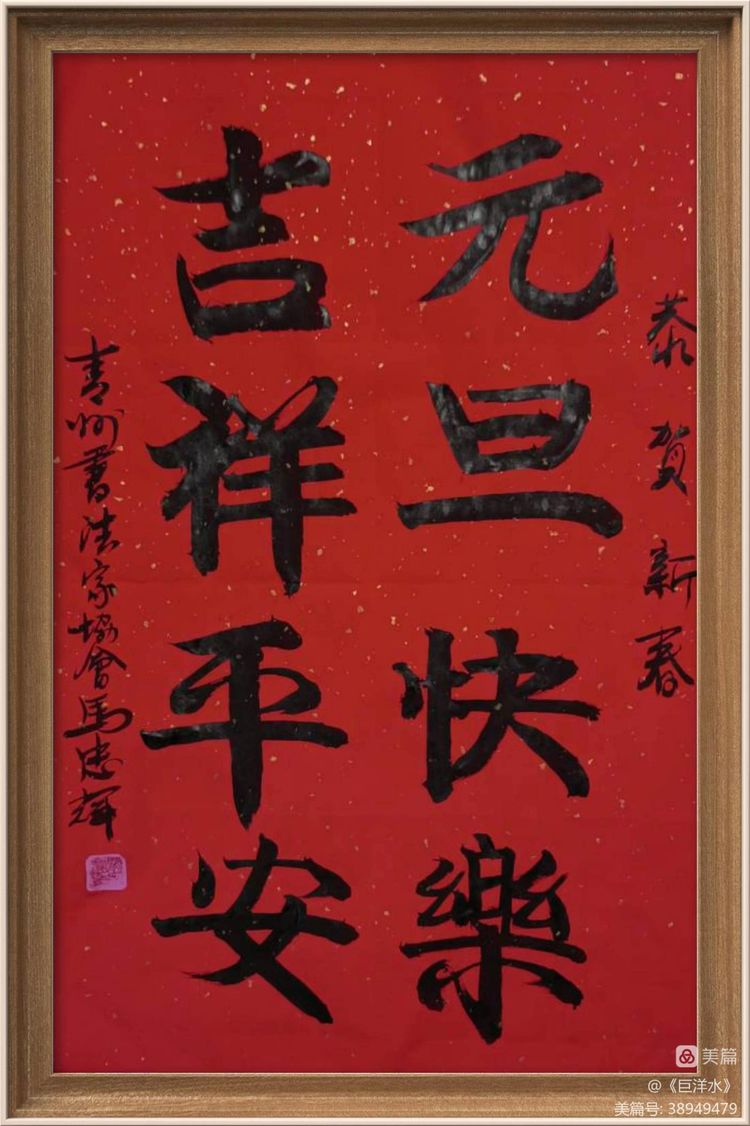 恭贺新春
元旦快樂
吉祥平安
青州書法家協會馬忠輝
美篇
@《巨洋水》
美篇号: 38949479